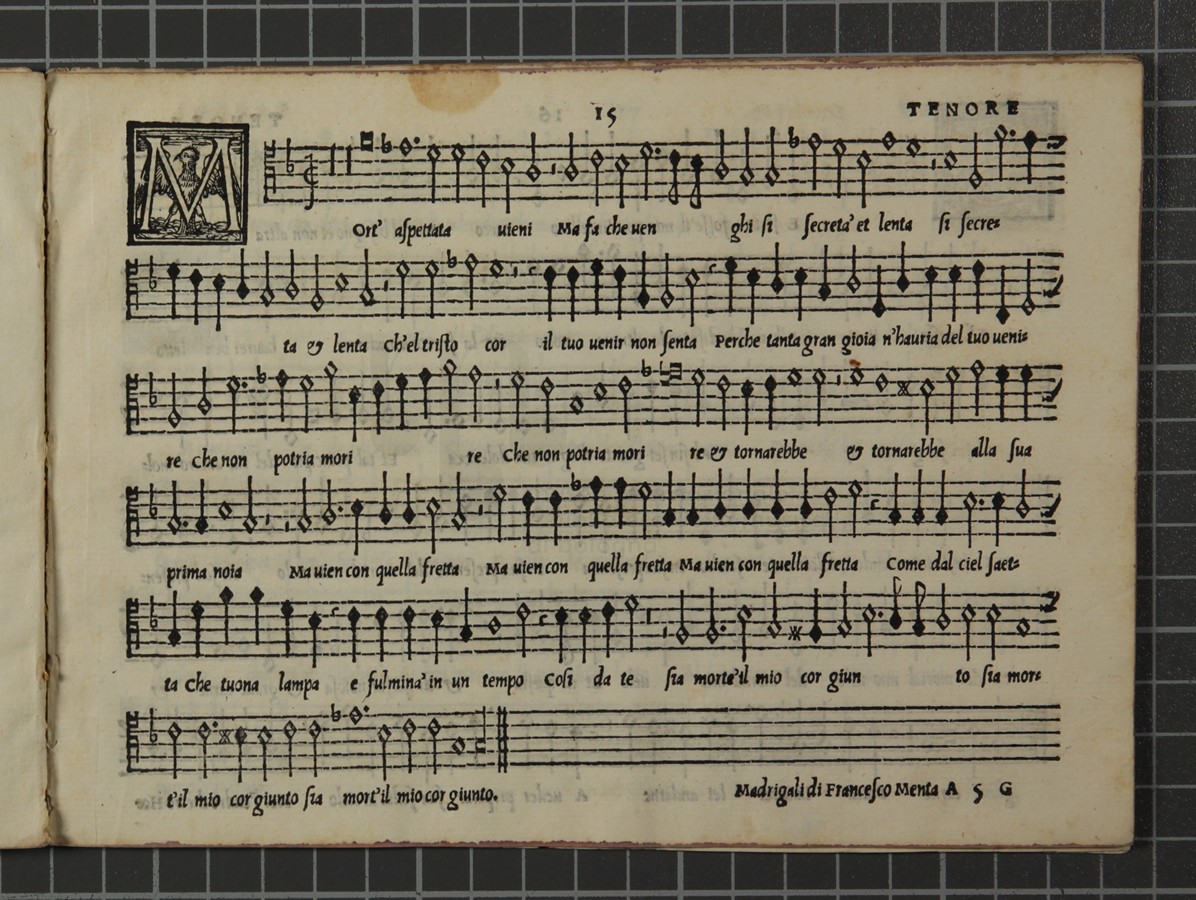 15 TENORE
MOrt' aſpettata uieni Ma fa che uen ghi ſi ſecreta' et lenta ſi ſecre=
ta & lenta Ch'el triſto cor il tuo uenir non ſenta Perche tanta gran gioia n'hauria del tuo ueni=
re Che non potria mori re Che non potria mori re & tornarebbe & tornarebbe alla ſua
prima noia Ma uien con quella fretta Ma uien con quella fretta Ma uien con quella fretta Come dal ciel ſaet=
ta Che tuona lampa e fulmina' in un tempo Coſi da te ſia morte'il mio cor giun to ſia mor=
t'il mio cor giunto ſia mort'il mio cor giunto.
Madrigali di Franceſco Menta A 5 G